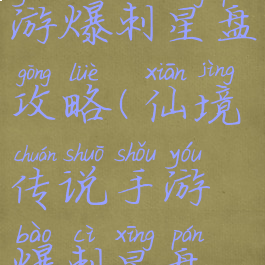 游爆刺星盘
gōng lüè xiān jìng
攻略(仙境
chuán shuō shǒu yóu
传说手游
bào cì xīng pán
爆刺星盘